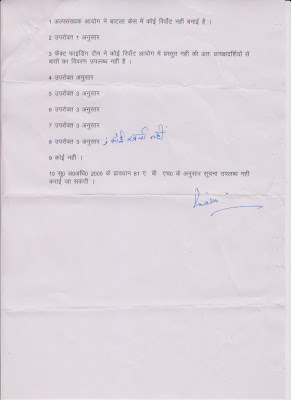 1 अल्पसंख्यक आयोग ने बाटला केस में कोई रिर्पोट नहीं बनाई है ।
2 उपरोक्त 1 अनुसार
3 फ़ैक्ट फाइडिंग टीम ने कोई रिर्पोट आयोग में प्रस्तुत नहीं की अतः प्रत्यक्षदर्शियों से
बातों का विवरण उपलब्ध नहीं है ।
4 उपरोक्त अनुसार
5 उपरोक्त 3 अनुसार
6 उपरोक्त 3 अनुसार
7 उपरोक्त 3 अनुसार
8 उपरोक्त 3 अनुसार ; कोई खर्चा नहीं
9 कोई नहीं ।
10 सू0 अ0अधि0 2005 के प्रावधान 81 ए बी एच0 के अनुसार सूचना उपलब्ध नहीं
कराई जा सकती ।